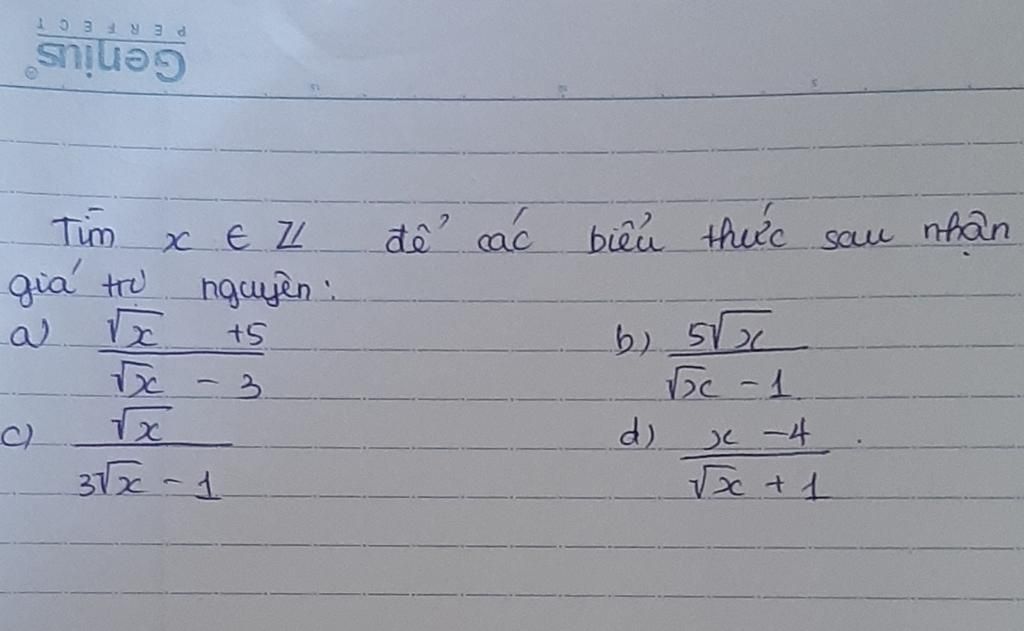 Genius
PERFECT
Tìm x ∈ Z để các biểu thức sau nhận
giá trị nguyên:
a) (√x + 5)/(√x - 3)
b) (5√x)/(√x - 1)
c) (√x)/(3√x - 1)
d) (x - 4)/(√x + 1).